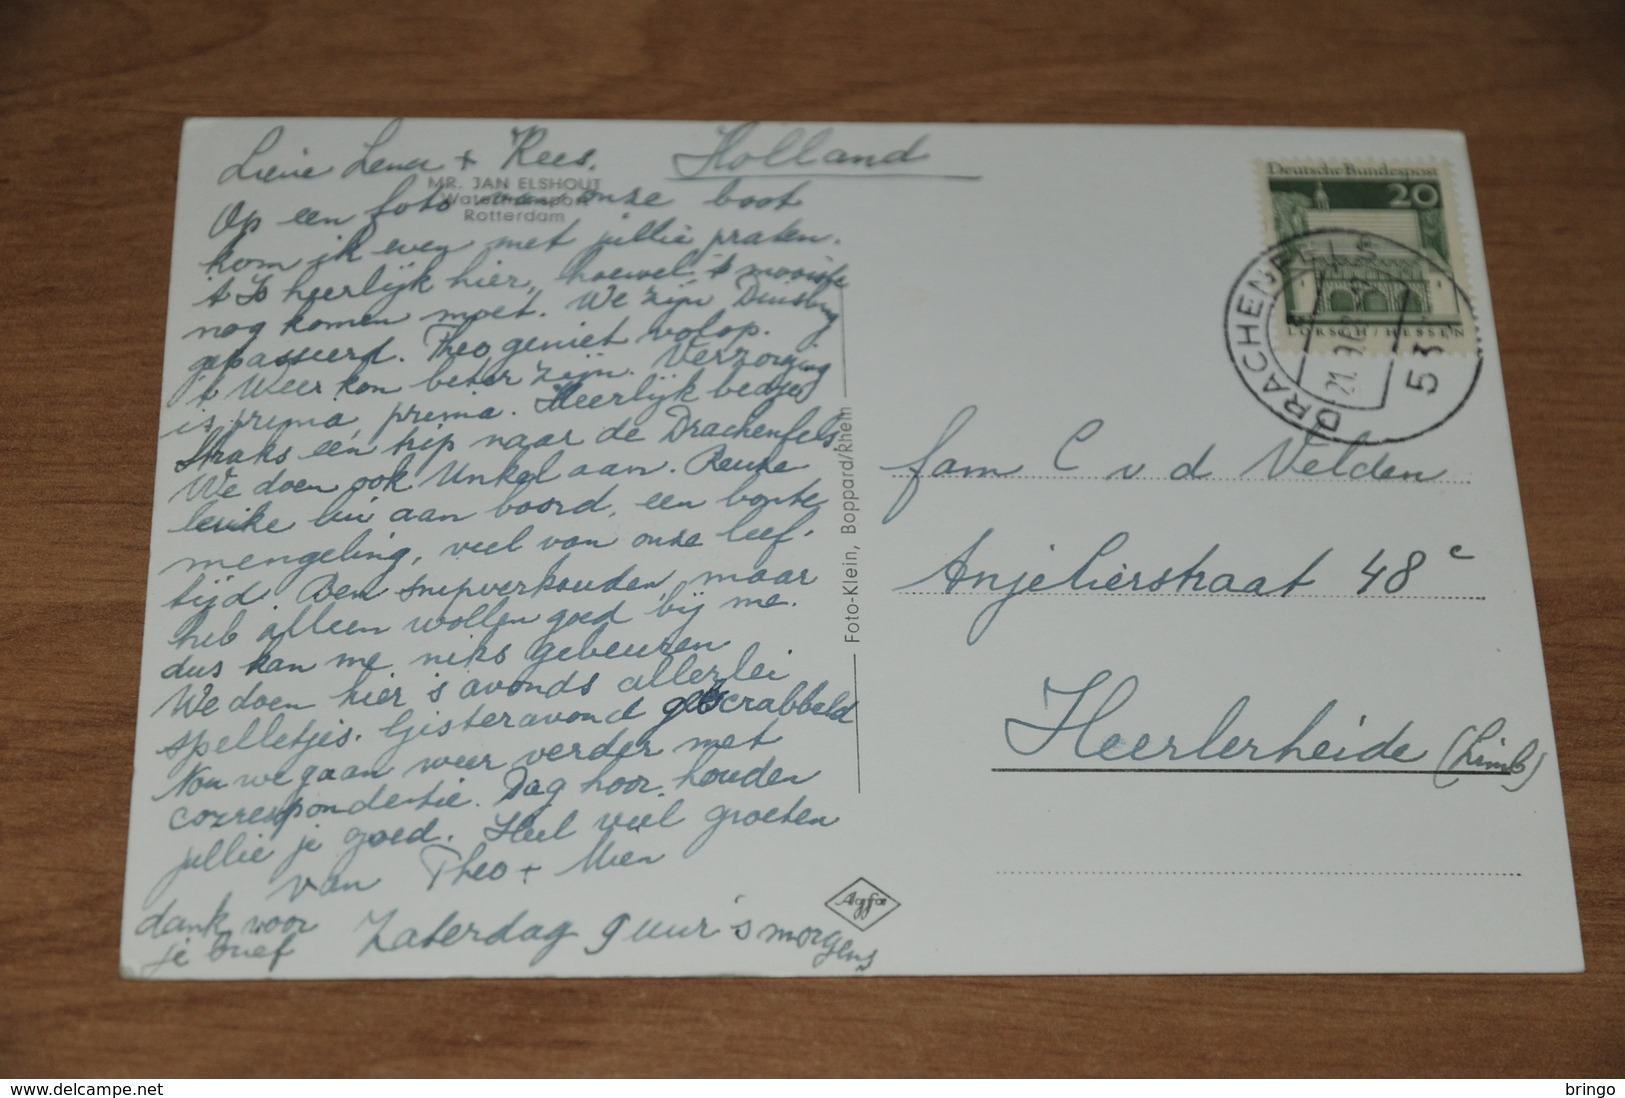 Lieve Lena + Kees.
Holland
MR. JAN ELSHOUT
Watertransport
Rotterdam
Op een foto van onze boot
kom ik even met jullie praten.
't Is heerlijk hier, hoewel 't mooiste
nog komen moet. We zijn Duisburg
gepasseerd. Theo geniet volop.
't Weer kon beter zijn. Verzorging
is prima, prima. Heerlijk bedje
Straks een trip naar de Drachenfels
We doen ook Unkel aan. Reuze
leuke lui aan boord, een bonte
mengeling, veel van onze leef-
tijd. Ben snipverkouden, maar
heb alleen wollen goed bij me.
dus kan me niks gebeuren
We doen hier 's avonds allerlei
spelletjes. Gisteravond gescrabbeld
Nou we gaan weer verder met
correspondentie. Dag hoor, houden
jullie je goed. Heel veel groeten
van Theo + Mien
dank voor
je brief
Zaterdag 9 uur 's morgens
Foto-Klein, Boppard/Rhein
Agfa
Deutsche Bundespost
20
LORSCH/HESSEN
DRACHENFELS
21.9.
53
fam C v d Velden
Anjelierstraat 48 c
Heerlerheide (Limb)
https://www.delcampe.net
bringo